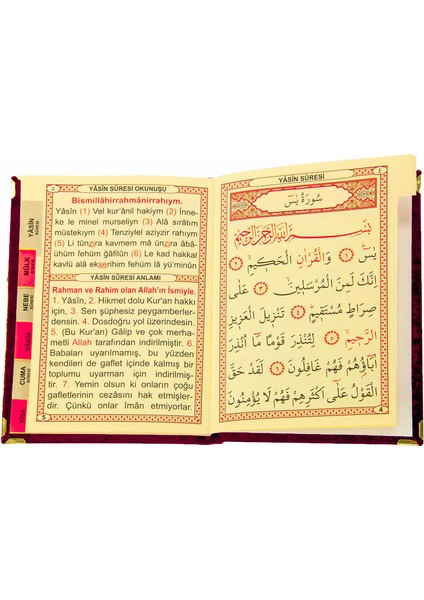 YÂSİN SÛRESİ OKUNUŞU
Bismillâhirrahmânirrahıym.
Yâsîn (1) Vel kur'ânil hakiym (2) İnne-
ke le minel murseliyn (3) Alâ sırâtım
müstekıym (4) Tenziylel aziyzir rahıym
(5) Li tünzira kavmem mâ ünzira âbâ-
ühüm fehüm ğâfilûn (6) Le kad hakkal
kavlü alâ ekserihim fehüm lâ yü'minûn
YÂSİN SÛRESİ ANLAMI
Rahman ve Rahim olan Allah'ın İsmiyle.
1. Yâsîn, 2. Hikmet dolu Kur'an hakkı
için, 3. Sen şüphesiz peygamberler-
densin. 4. Dosdoğru yol üzerindesin.
5. (Bu Kur'an) Gâlip ve çok merha-
metli Allah tarafından indirilmiştir. 6.
Babaları uyarılmamış, bu yüzden
kendileri de gaflet içinde kalmış bir
toplumu uyarman için indirilmiş-
tir. 7. Yemin olsun ki onların çoğu
gafletlerinin cezasını hak etmişler-
dir. Çünkü onlar îman etmiyorlar.
5
YÂSİN
SÛRESİ
MÜLK
SÛRESİ
NEBE
SÛRESİ
VAKIA
CUMA
SÛRESİ
YÂSİN SÛRESİ
1
سُورَةُ يٰسٓ
بِسْمِ اللّٰهِ الرَّحْمٰنِ الرَّحِيمِ
يٰسٓ ﴿١﴾ وَالْقُرْاٰنِ الْحَكِيمِ ﴿٢﴾
اِنَّكَ لَمِنَ الْمُرْسَلِينَ ﴿٣﴾ عَلٰى
صِرَاطٍ مُسْتَقِيمٍ ﴿٤﴾ تَنْزِيلَ الْعَزِيزِ
الرَّحِيمِ ﴿٥﴾ لِتُنْذِرَ قَوْمًا مَٓا اُنْذِرَ
اٰبَٓاؤُهُمْ فَهُمْ غَافِلُونَ ﴿٦﴾ لَقَدْ حَقَّ
الْقَوْلُ عَلٰٓى اَكْثَرِهِمْ فَهُمْ لَا يُؤْمِنُونَ
4